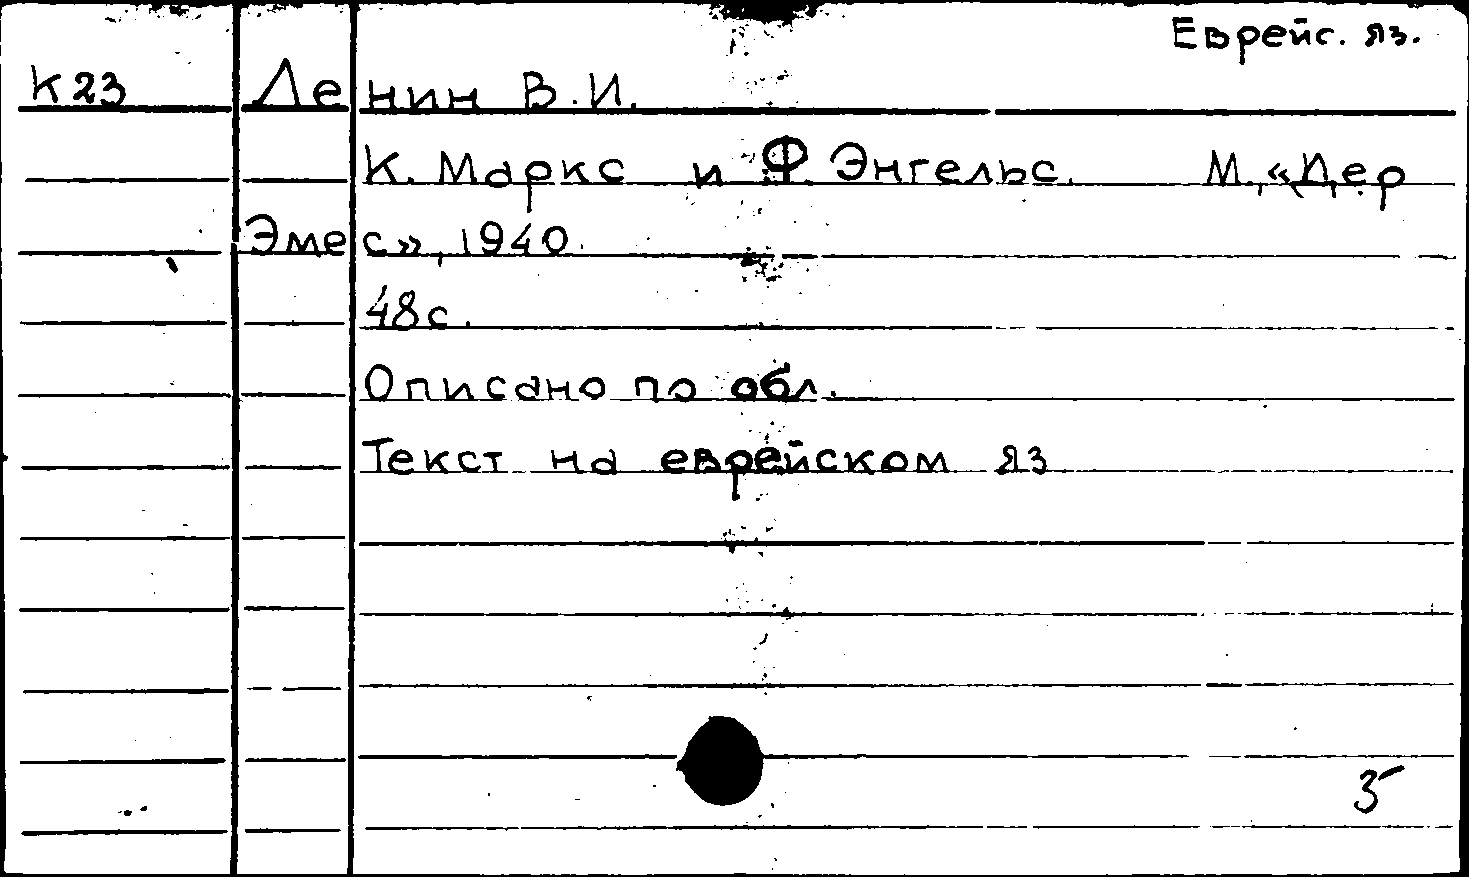 Еврейс. яз.
К23 Ленин В.И.
К. Маркс и Ф. Энгельс. М., «Дер
Эмес», 1940.
48с.
Описано по обл.
Текст на еврейском яз
5